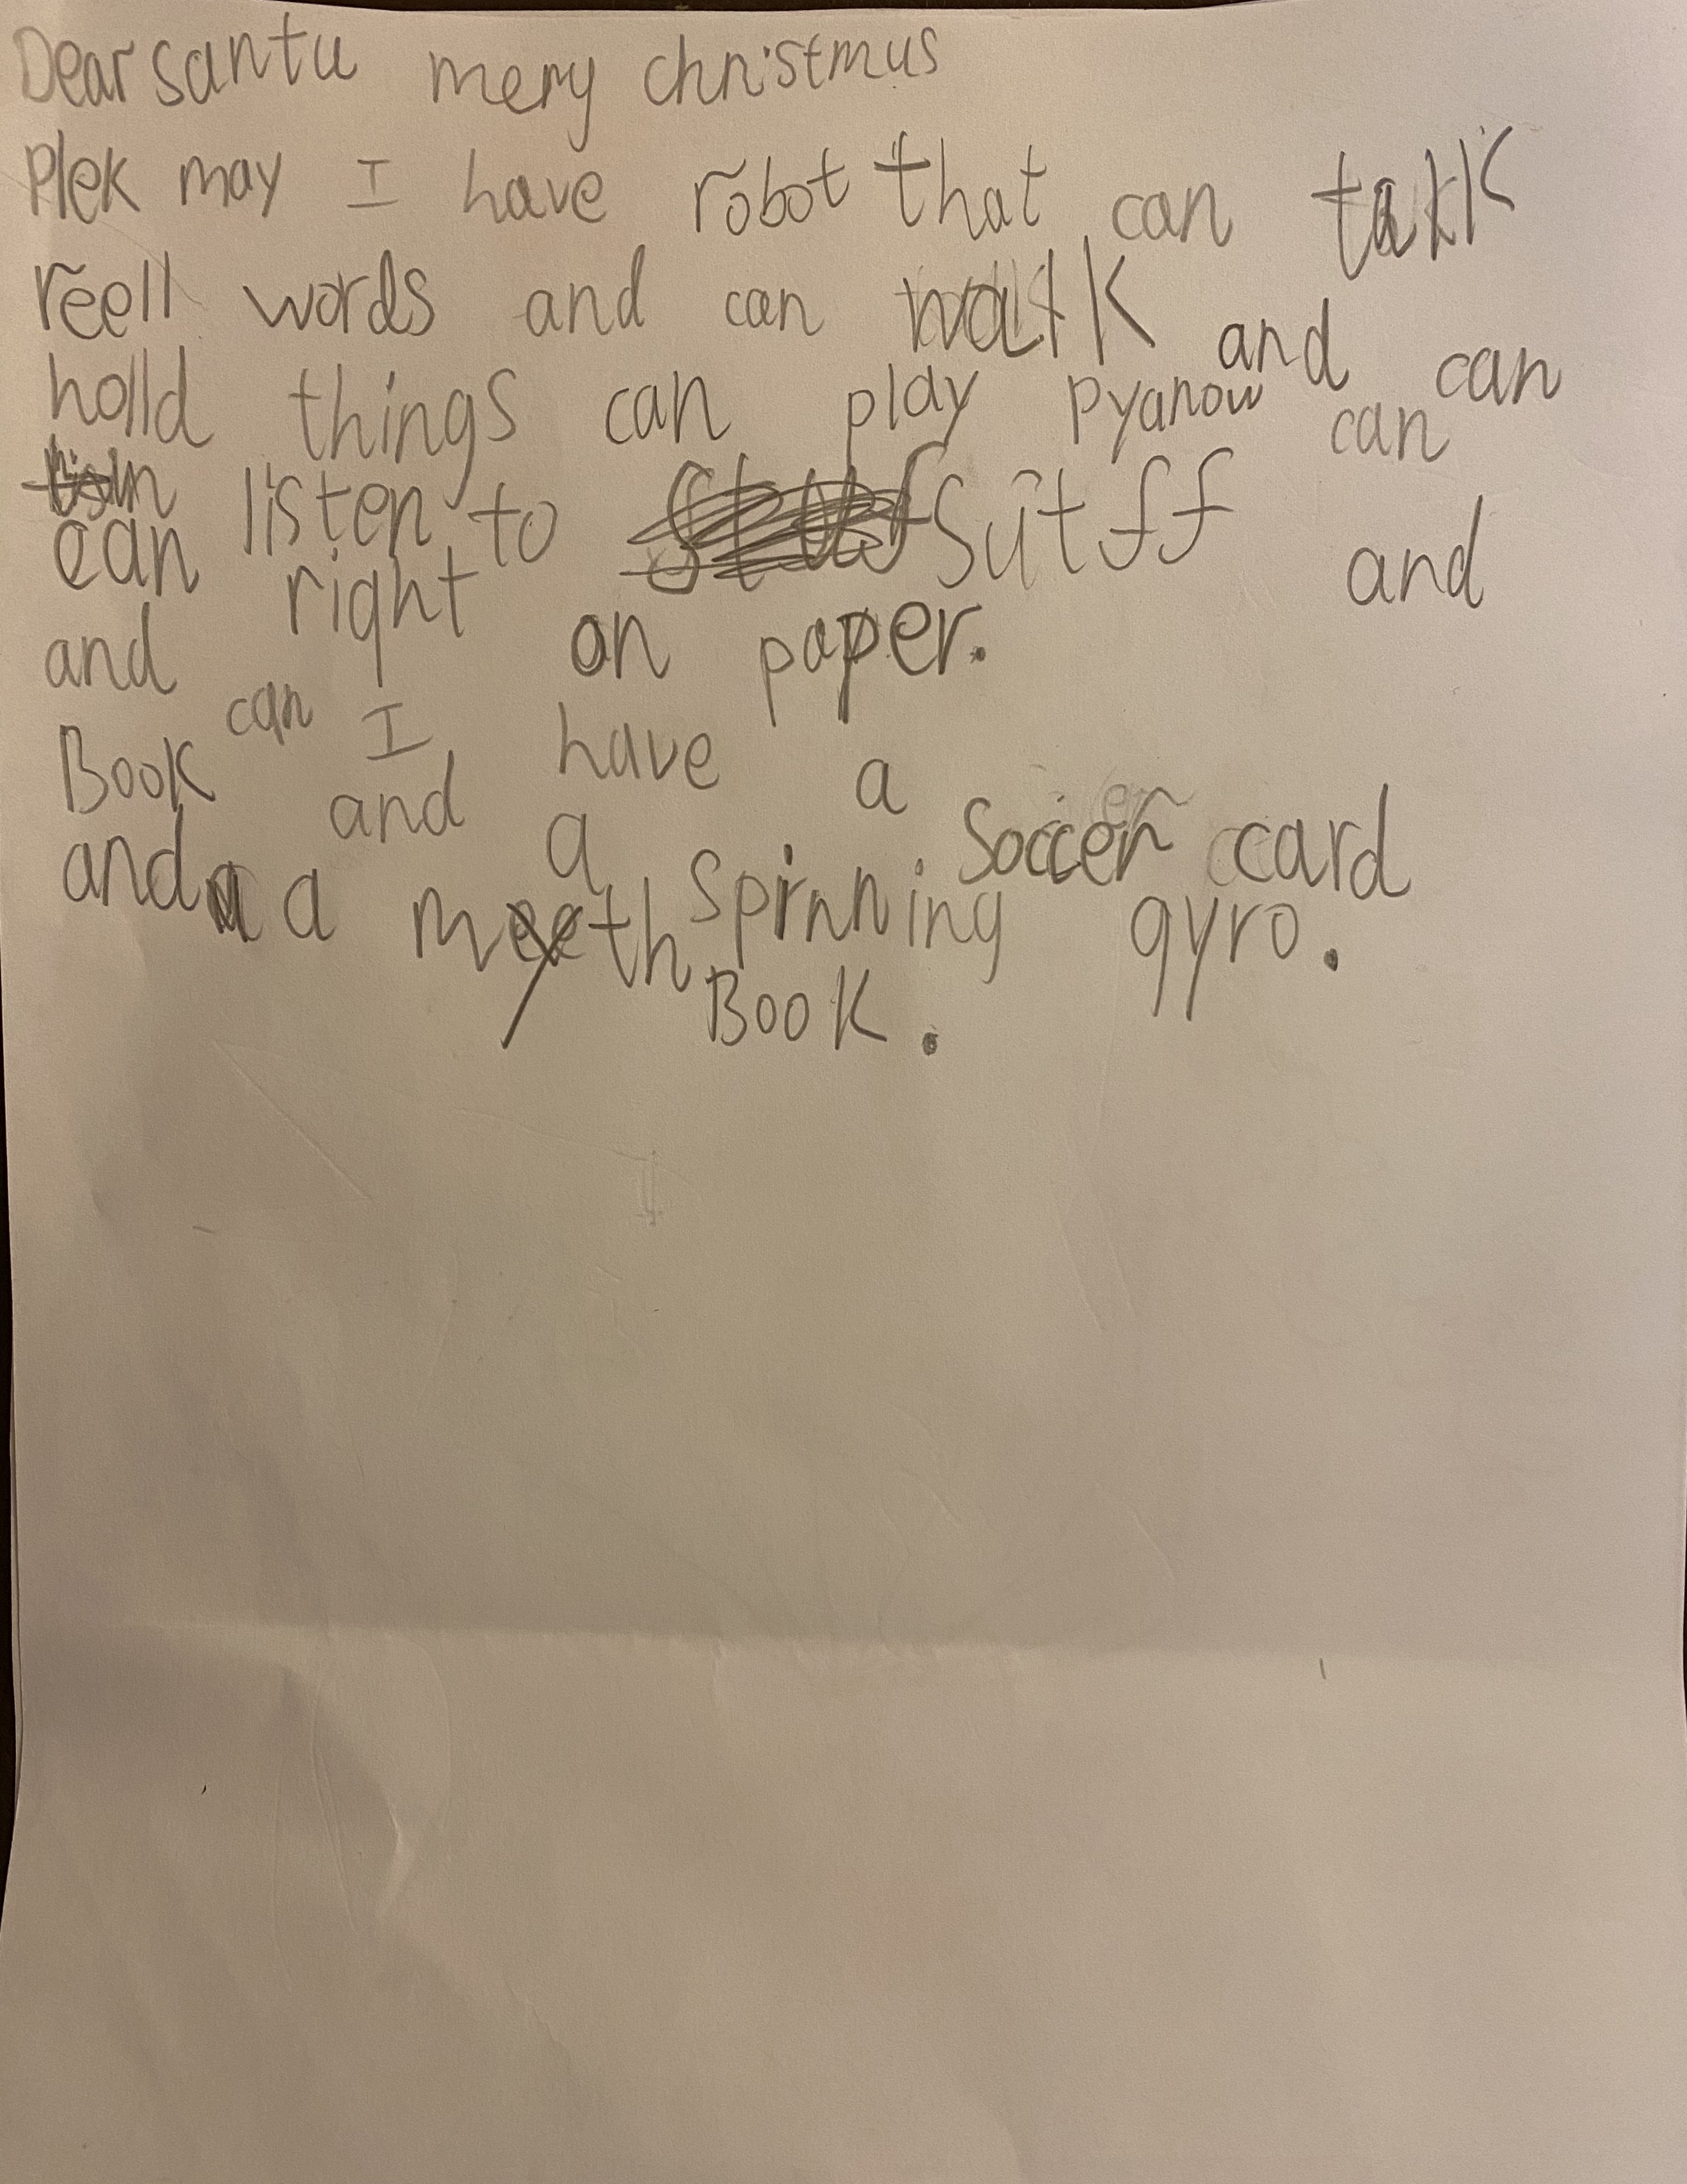 Dear santu mery christmus
Plek may I have robot that can talk
reell words and can walk and can
holld things can play Pyanow can
listen to sutff and
can right on paper.
and can I have a soccer card
Book and a spinning gyro.
and a meth Book.